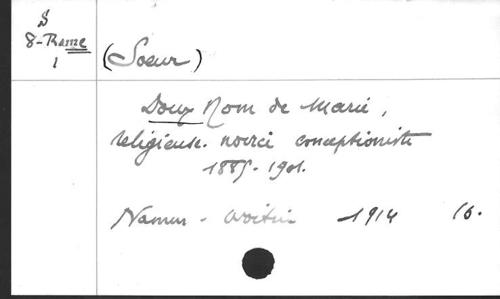 S
8-Rame
1
(Soeur)
Doux Nom de Marie,
religieuse conceptioniste
1885-1901.
Namur - 1914 16.